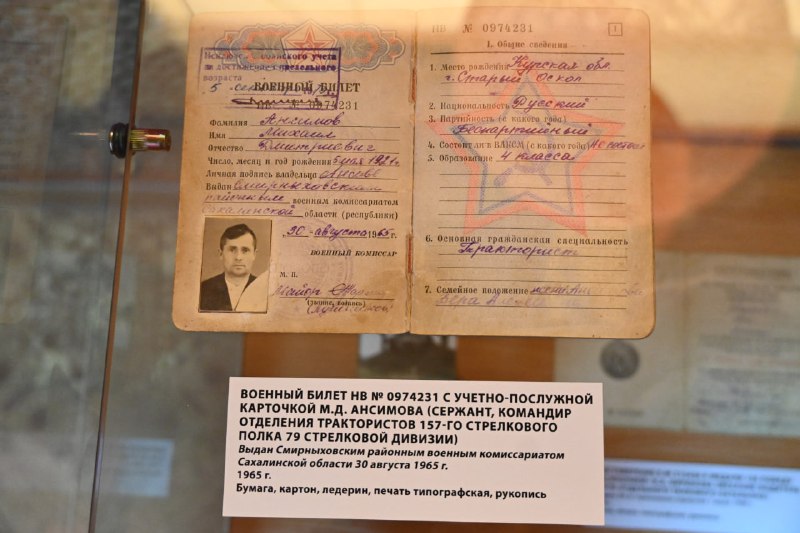 Исключен с воинского учета
по достижении предельного
возраста
ВОЕННЫЙ БИЛЕТ
НВ № 0974231
Фамилия Ансимов
Имя Михаил
Отчество Дмитриевич
Число, месяц и год рождения 5 мая 1921 г.
Личная подпись владельца
Выдан Смирныховским
районным военным комиссариатом
Сахалинской области (республики)
"30" августа 1965 г.
ВОЕННЫЙ КОМИССАР
М. П.
майор
(звание, подпись)
НВ № 0974231
1
I. Общие сведения
1. Место рождения Курская обл.
г. Старый Оскол
2. Национальность Русский
3. Партийность (с какого года)
Беспартийный
4. Состоит ли в ВЛКСМ (с какого года) Не состоит
5. Образование 4 класса
6. Основная гражданская специальность
Тракторист
7. Семейное положение
ВОЕННЫЙ БИЛЕТ НВ № 0974231 С УЧЕТНО-ПОСЛУЖНОЙ
КАРТОЧКОЙ М.Д. АНСИМОВА (СЕРЖАНТ, КОМАНДИР
ОТДЕЛЕНИЯ ТРАКТОРИСТОВ 157-ГО СТРЕЛКОВОГО
ПОЛКА 79 СТРЕЛКОВОЙ ДИВИЗИИ)
Выдан Смирныховским районным военным комиссариатом
Сахалинской области 30 августа 1965 г.
1965 г.
Бумага, картон, ледерин, печать типографская, рукопись